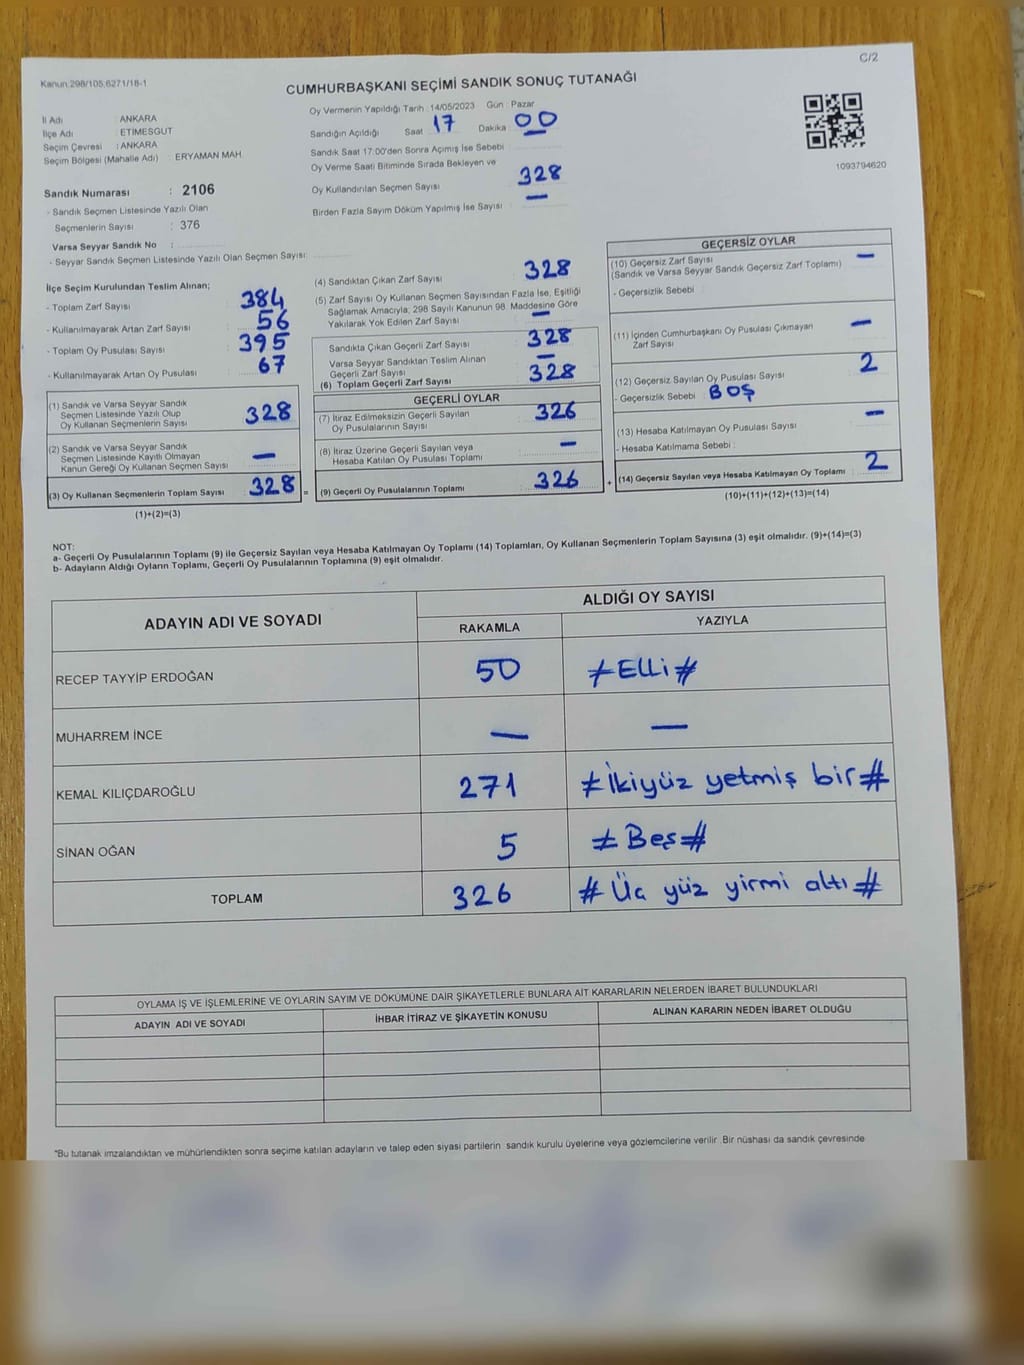 C/2
Kanun:298/105,6271/18-1
CUMHURBAŞKANI SEÇİMİ SANDIK SONUÇ TUTANAĞI
İl Adı : ANKARA
İlçe Adı : ETIMESGUT
Seçim Çevresi : ANKARA
Seçim Bölgesi (Mahalle Adı) : ERYAMAN MAH.
Sandık Numarası : 2106
- Sandık Seçmen Listesinde Yazılı Olan
Seçmenlerin Sayısı : 376
Varsa Seyyar Sandık No :
- Seyyar Sandık Seçmen Listesinde Yazılı Olan Seçmen Sayısı:
Oy Vermenin Yapıldığı Tarih : 14/05/2023 Gün : Pazar
Sandığın Açıldığı Saat 17 Dakika 00
Sandık Saat 17:00'den Sonra Açımış İse Sebebi
Oy Verme Saati Bitiminde Sırada Bekleyen ve
Oy Kullandırılan Seçmen Sayısı 328
Birden Fazla Sayım Döküm Yapılmış İse Sayısı : —
1093794620
İlçe Seçim Kurulundan Teslim Alınan;
- Toplam Zarf Sayısı : 384
- Kullanılmayarak Artan Zarf Sayısı : 56
- Toplam Oy Pusulası Sayısı : 395
- Kullanılmayarak Artan Oy Pusulası : 67
(1) Sandık ve Varsa Seyyar Sandık
Seçmen Listesinde Yazılı Olup
Oy Kullanan Seçmenlerin Sayısı 328
(2) Sandık ve Varsa Seyyar Sandık
Seçmen Listesinde Kayıtlı Olmayan
Kanun Gereği Oy Kullanan Seçmen Sayısı —
(3) Oy Kullanan Seçmenlerin Toplam Sayısı 328 =
(1)+(2)=(3)
(4) Sandıktan Çıkan Zarf Sayısı 328
(5) Zarf Sayısı Oy Kullanan Seçmen Sayısından Fazla İse, Eşitliği
Sağlamak Amacıyla; 298 Sayılı Kanunun 98. Maddesine Göre
Yakılarak Yok Edilen Zarf Sayısı —
Sandıkta Çıkan Geçerli Zarf Sayısı 328
Varsa Seyyar Sandıktan Teslim Alınan
Geçerli Zarf Sayısı —
(6) Toplam Geçerli Zarf Sayısı 328
GEÇERLİ OYLAR
(7) İtiraz Edilmeksizin Geçerli Sayılan
Oy Pusulalarının Sayısı 326
(8) İtiraz Üzerine Geçerli Sayılan veya
Hesaba Katılan Oy Pusulası Toplamı —
(9) Geçerli Oy Pusulalarının Toplamı 326 +
GEÇERSİZ OYLAR
(10) Geçersiz Zarf Sayısı —
(Sandık ve Varsa Seyyar Sandık Geçersiz Zarf Toplamı)
- Geçersizlik Sebebi :
(11) İçinden Cumhurbaşkanı Oy Pusulası Çıkmayan
Zarf Sayısı —
(12) Geçersiz Sayılan Oy Pusulası Sayısı 2
- Geçersizlik Sebebi : BOŞ
(13) Hesaba Katılmayan Oy Pusulası Sayısı —
- Hesaba Katılmama Sebebi :
(14) Geçersiz Sayılan veya Hesaba Katılmayan Oy Toplamı 2
(10)+(11)+(12)+(13)=(14)
NOT:
a- Geçerli Oy Pusulalarının Toplamı (9) ile Geçersiz Sayılan veya Hesaba Katılmayan Oy Toplamı (14) Toplamları, Oy Kullanan Seçmenlerin Toplam Sayısına (3) eşit olmalıdır. (9)+(14)=(3)
b- Adayların Aldığı Oyların Toplamı, Geçerli Oy Pusulalarının Toplamına (9) eşit olmalıdır.
ADAYIN ADI VE SOYADI
ALDIĞI OY SAYISI
RAKAMLA YAZIYLA
RECEP TAYYİP ERDOĞAN 50 # Elli #
MUHARREM İNCE — —
KEMAL KILIÇDAROĞLU 271 # İkiyüz yetmiş bir #
SİNAN OĞAN 5 # Beş #
TOPLAM 326 # Üç yüz yirmi altı #
OYLAMA İŞ VE İŞLEMLERİNE VE OYLARIN SAYIM VE DÖKÜMÜNE DAİR ŞİKAYETLERLE BUNLARA AİT KARARLARIN NELERDEN İBARET BULUNDUKLARI
ADAYIN ADI VE SOYADI İHBAR İTİRAZ VE ŞİKAYETİN KONUSU ALINAN KARARIN NEDEN İBARET OLDUĞU
*Bu tutanak imzalandıktan ve mühürlendikten sonra seçime katılan adayların ve talep eden siyasi partilerin sandık kurulu üyelerine veya gözlemcilerine verilir Bir nüshası da sandık çevresinde